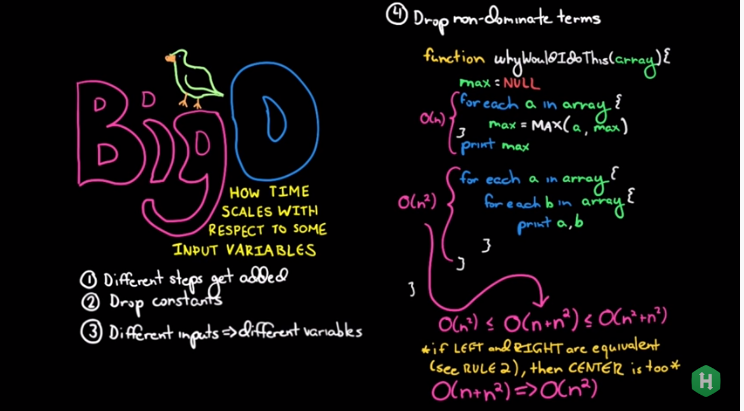 Big O
HOW TIME
SCALES WITH
RESPECT TO SOME
INPUT VARIABLES
① Different steps get added
② Drop constants
③ Different inputs ⇒ different variables
④ Drop non-dominate terms
function whyWouldIDoThis(array){
max = NULL
O(n)
for each a in array {
max = MAX(a, max)
}
print max
O(n²)
for each a in array {
for each b in array {
print a,b
}
}
}
O(n²) ≤ O(n+n²) ≤ O(n²+n²)
*if LEFT and RIGHT are equivalent
(see RULE 2), then CENTER is too*
O(n+n²) ⇒ O(n²)
H